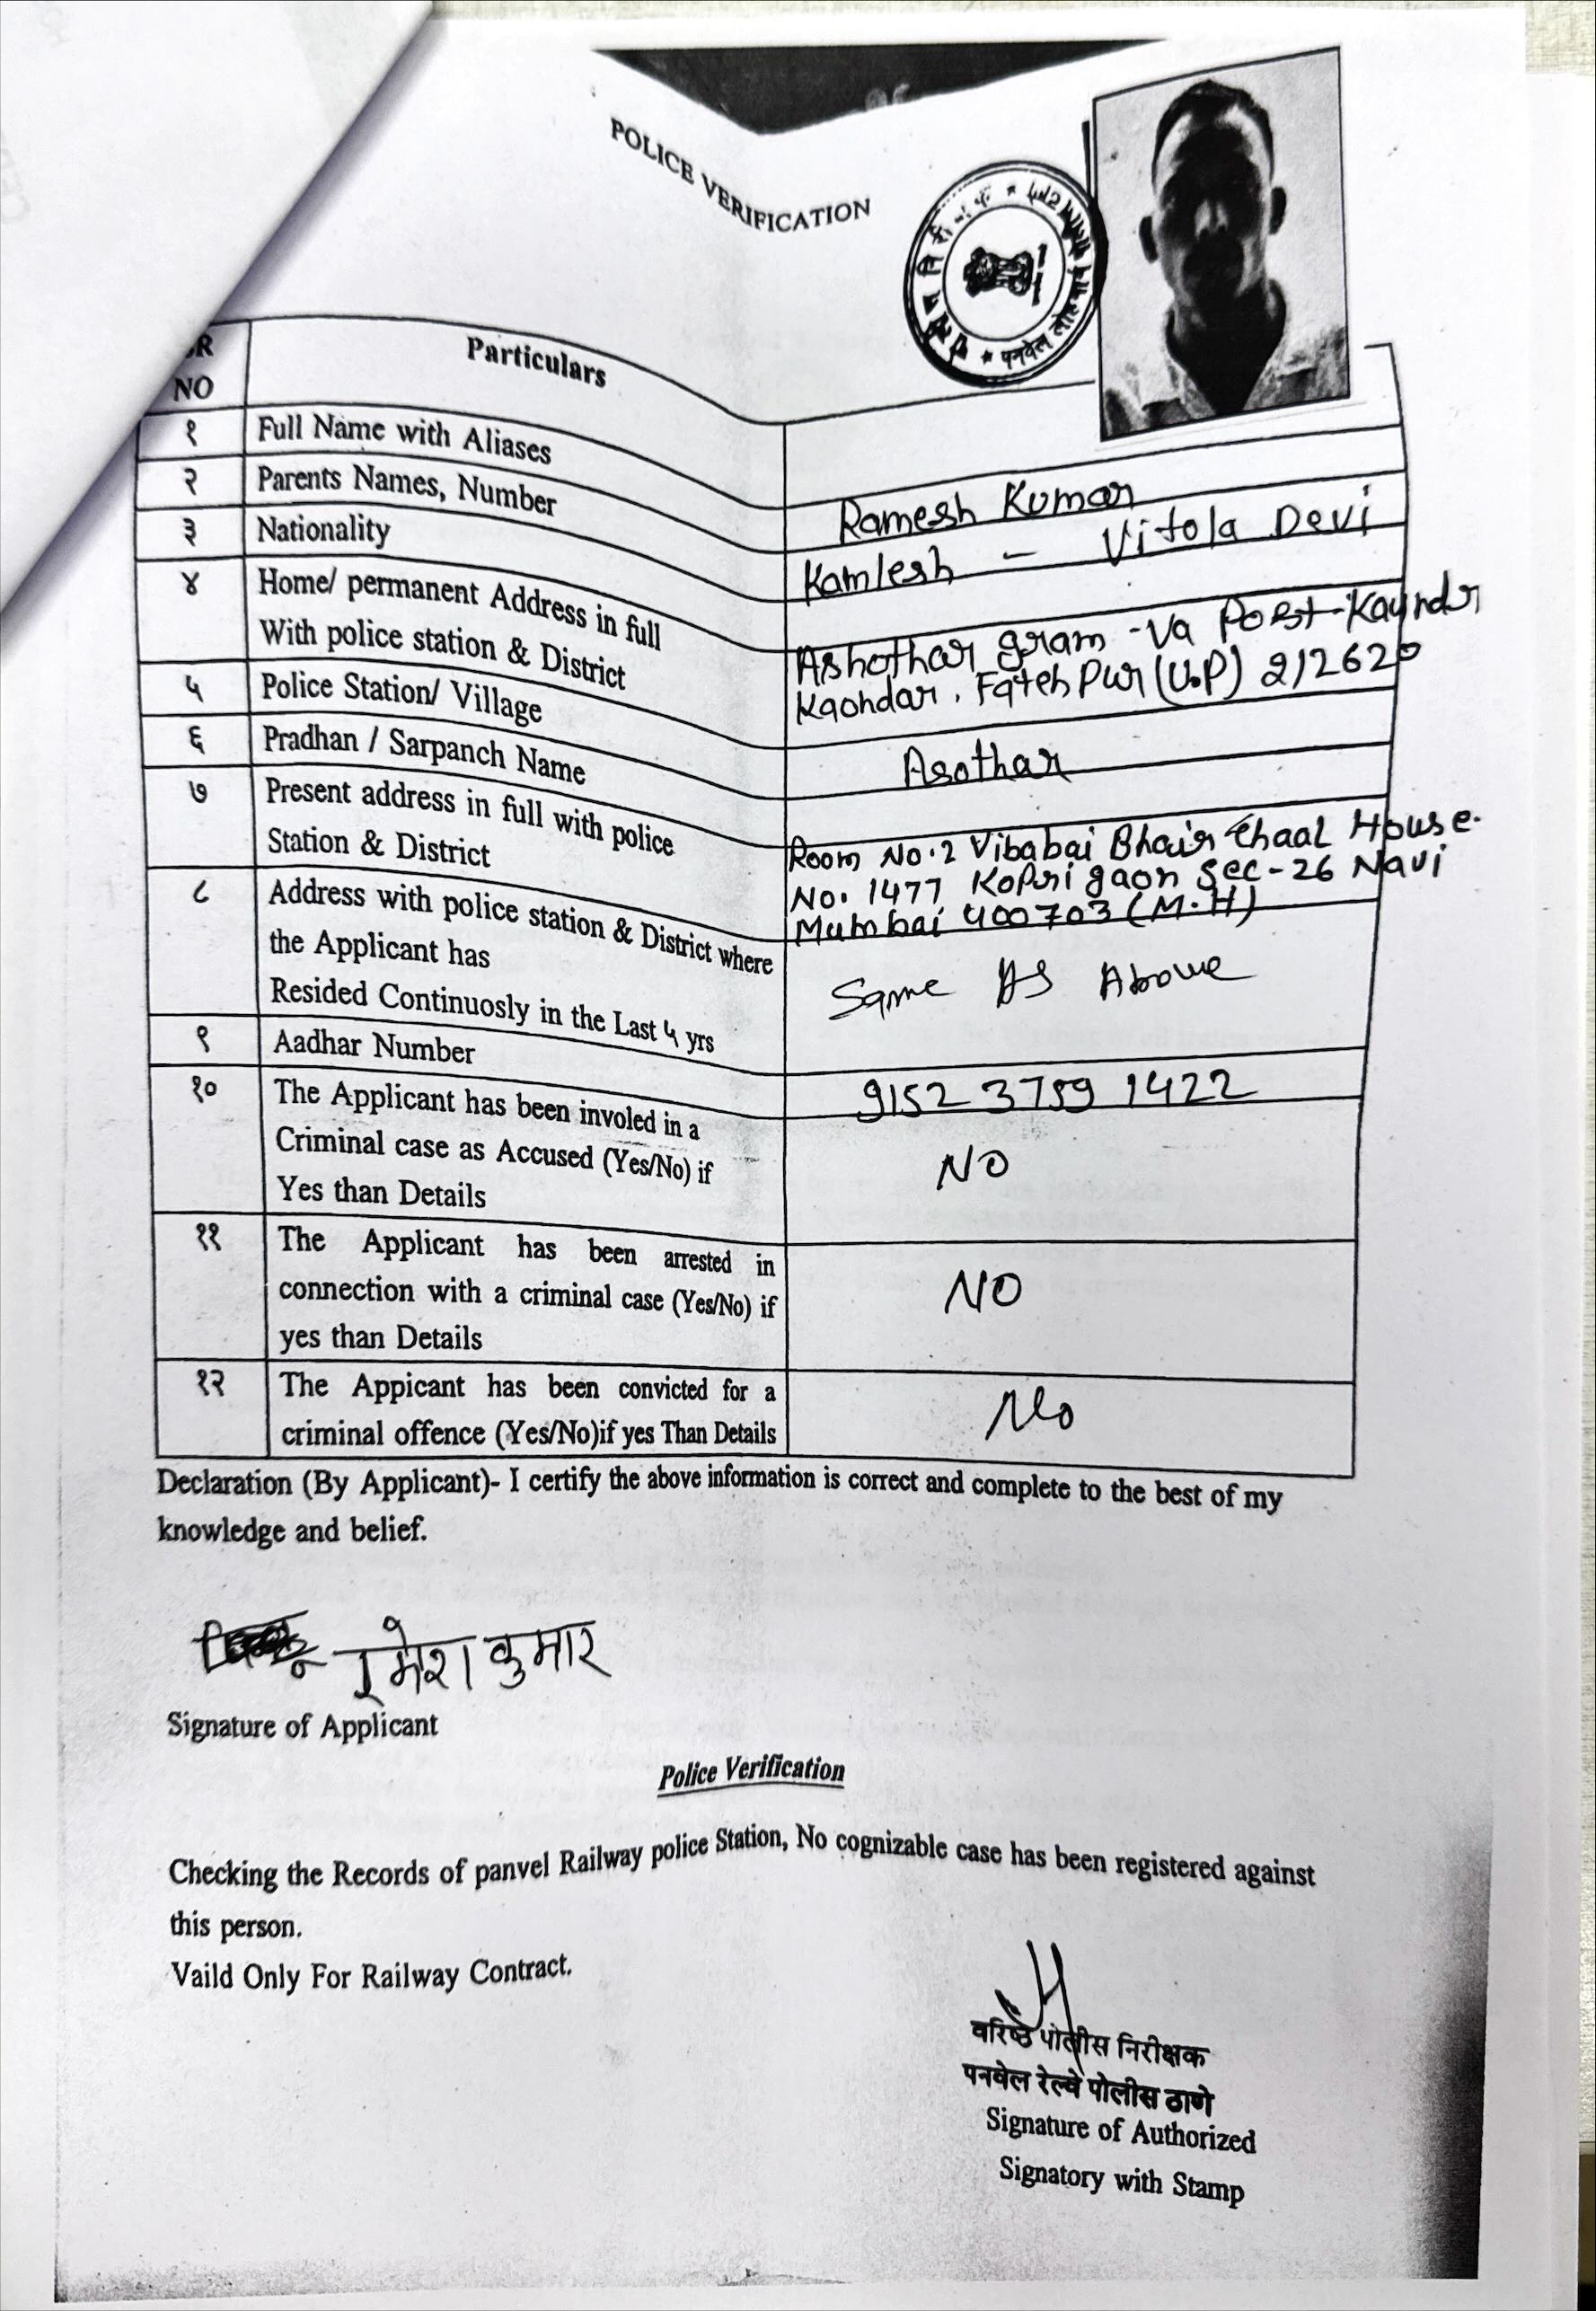 POLICE VERIFICATION
पनवेल
NO
Particulars
१ Full Name with Aliases Ramesh Kumar
२ Parents Names, Number Kamlesh - Vitola Devi
३ Nationality
४ Home/ permanent Address in full Ashothar gram -Va Post-
With police station & District Kaondar, Fateh Pur (U.P) 212620
५ Police Station/ Village Asothar
६ Pradhan / Sarpanch Name
७ Present address in full with police Room No.2 Vibabai Bhair Chaal House.
Station & District No. 1477 Kopri gaon Sec-26 Navi
Mumbai 400703 (M.H)
८ Address with police station & District where
the Applicant has Same As Above
Resided Continuosly in the Last ५ yrs
९ Aadhar Number 9152 3759 1422
१० The Applicant has been involed in a
Criminal case as Accused (Yes/No) if NO
Yes than Details
११ The Applicant has been arrested in
connection with a criminal case (Yes/No) if NO
yes than Details
१२ The Appicant has been convicted for a No
criminal offence (Yes/No)if yes Than Details
Declaration (By Applicant)- I certify the above information is correct and complete to the best of my
knowledge and belief.
रमेश कुमार
Signature of Applicant
Police Verification
Checking the Records of panvel Railway police Station, No cognizable case has been registered against
this person.
Vaild Only For Railway Contract.
वरिष्ठ पोलीस निरीक्षक
पनवेल रेल्वे पोलीस ठाणे
Signature of Authorized
Signatory with Stamp